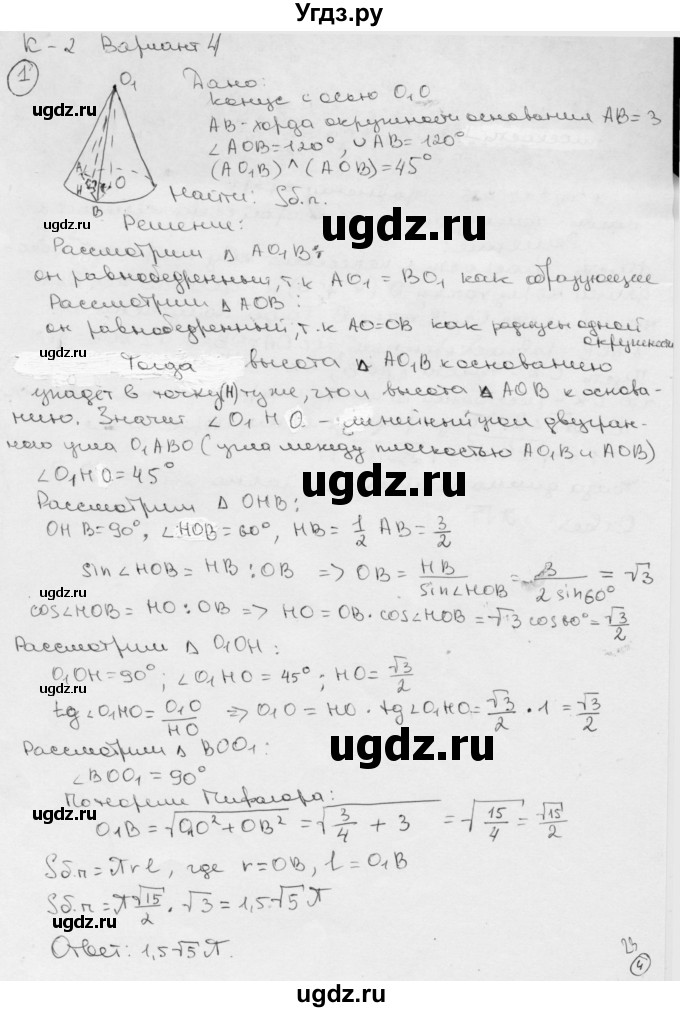 Угдз.ру
К-2 Вариант 4
1
Дано:
конус с осью O₁O
AB - хорда окружности основания AB = 3
∠AOB = 120°, ∪AB = 120°
(AO₁B) ^ (AOB) = 45°
O₁
A
H
O
B
Найти: Sб.п.
ugdz.ru
ugdz.ru
ugdz.ru
Решение:
Рассмотрим △ AO₁B:
он равнобедренный, т.к AO₁ = BO₁ как образующие
Рассмотрим △ AOB:
он равнобедренный, т.к AO=OB как радиусы одной окружности
ugdz.ru
Тогда высота △ AO₁B к основанию
упадет в точку (H) ту же, что и высота △ AOB к основа-
нию. Значит ∠O₁HO - линейный угол двугран-
ного угла O₁ABO (угла между плоскостью AO₁B и AOB)
∠O₁HO = 45°
ugdz.ru
Рассмотрим △ OHB:
OHB = 90°, ∠HOB = 60°, HB = 1/2 AB = 3/2
sin∠HOB = HB : OB => OB = HB/sin∠HOB = 3/2sin60° = √3
ugdz.ru
cos∠HOB = HO : OB => HO = OB · cos∠HOB = √3 cos60° = √3/2
Рассмотрим △ O₁OH:
O₁OH = 90°; ∠O₁HO = 45°; HO = √3/2
ugdz.ru
tg∠O₁HO = O₁O/HO => O₁O = HO · tg∠O₁HO = √3/2 · 1 = √3/2
ugdz.ru
Рассмотрим △ BOO₁:
∠BOO₁ = 90°
По теореме Пифагора:
ugdz.ru
O₁B = √O₁O² + OB² = √3/4 + 3 = √15/4 = √15/2
Sб.п = πrl, где r = OB, l = O₁B
Sб.п = π √15/2 · √3 = 1,5·√5 π
ugdz.ru
Ответ: 1,5√5 π.
23
4
ugdz.ru